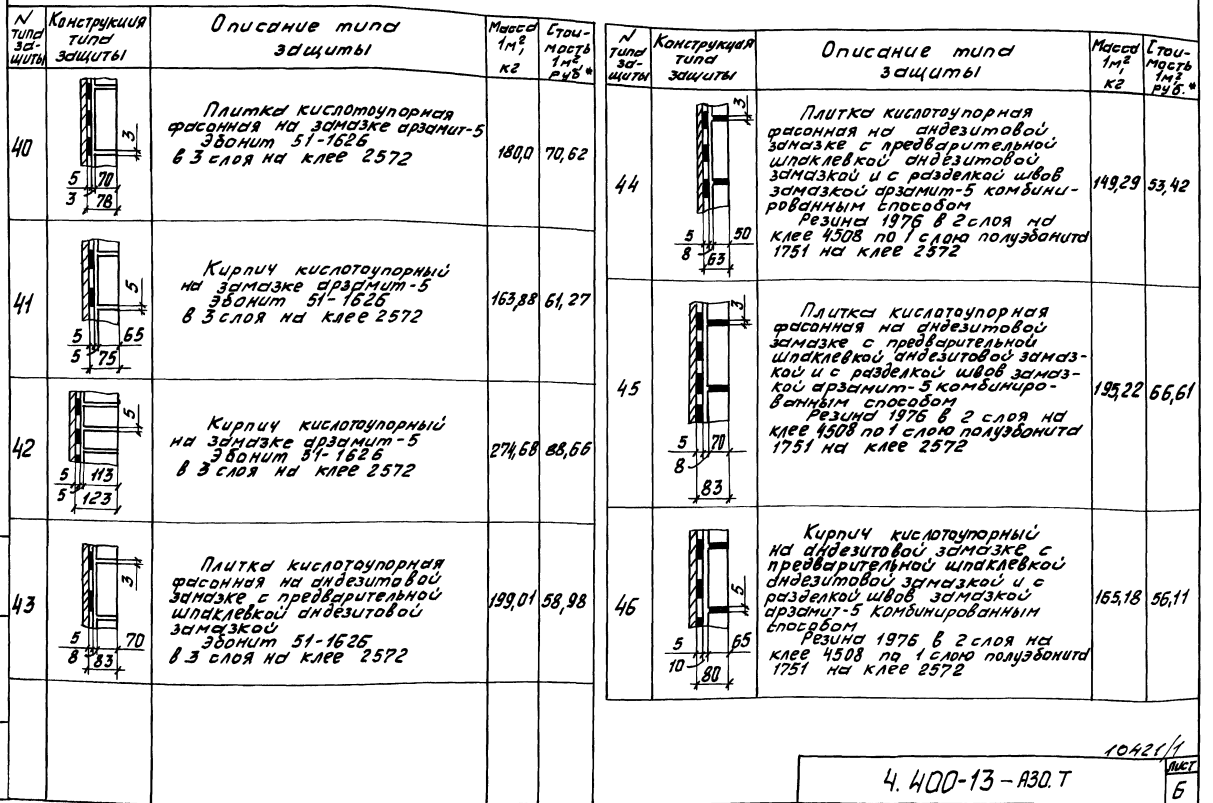 N типа защиты
Конструкция типа защиты
Описание типа защиты
Масса 1м², кг
Стоимость 1м² руб.*
40
3
5
70
3
78
Плитка кислотоупорная
фасонная на замазке арзамит-5
Эбонит 51-1626
в 3 слоя на клее 2572
180,0
70,62
41
5
5
65
5
75
Кирпич кислотоупорный
на замазке арзамит-5
Эбонит 51-1626
в 3 слоя на клее 2572
163,88
61,27
42
5
5
113
5
123
Кирпич кислотоупорный
на замазке арзамит-5
Эбонит 51-1626
в 3 слоя на клее 2572
274,68
88,66
43
3
5
70
8
83
Плитка кислотоупорная
фасонная на андезитовой
замазке с предварительной
шпаклевкой андезитовой
замазкой
Эбонит 51-1626
в 3 слоя на клее 2572
199,01
58,98
N типа защиты
Конструкция типа защиты
Описание типа защиты
Масса 1м², кг
Стоимость 1м² руб.*
44
3
5
50
8
63
Плитка кислотоупорная
фасонная на андезитовой
замазке с предварительной
шпаклевкой андезитовой
замазкой и с разделкой швов
замазкой арзамит-5 комбини-
рованным способом
Резина 1976 в 2 слоя на
клее 4508 по 1 слою полуэбонита
1751 на клее 2572
149,29
53,42
45
3
5
70
8
83
Плитка кислотоупорная
фасонная на андезитовой
замазке с предварительной
шпаклевкой андезитовой замаз-
кой и с разделкой швов замаз-
кой арзамит-5 комбиниро-
ванным способом
Резина 1976 в 2 слоя на
клее 4508 по 1 слою полуэбонита
1751 на клее 2572
195,22
66,61
46
5
5
65
10
80
Кирпич кислотоупорный
на андезитовой замазке с
предварительной шпаклевкой
андезитовой замазкой и с
разделкой швов замазкой
арзамит-5 комбинированным
способом
Резина 1976 в 2 слоя на
клее 4508 по 1 слою полуэбонита
1751 на клее 2572
165,18
56,11
10421/1
4.400-13-АЗО.Т
Лист
6